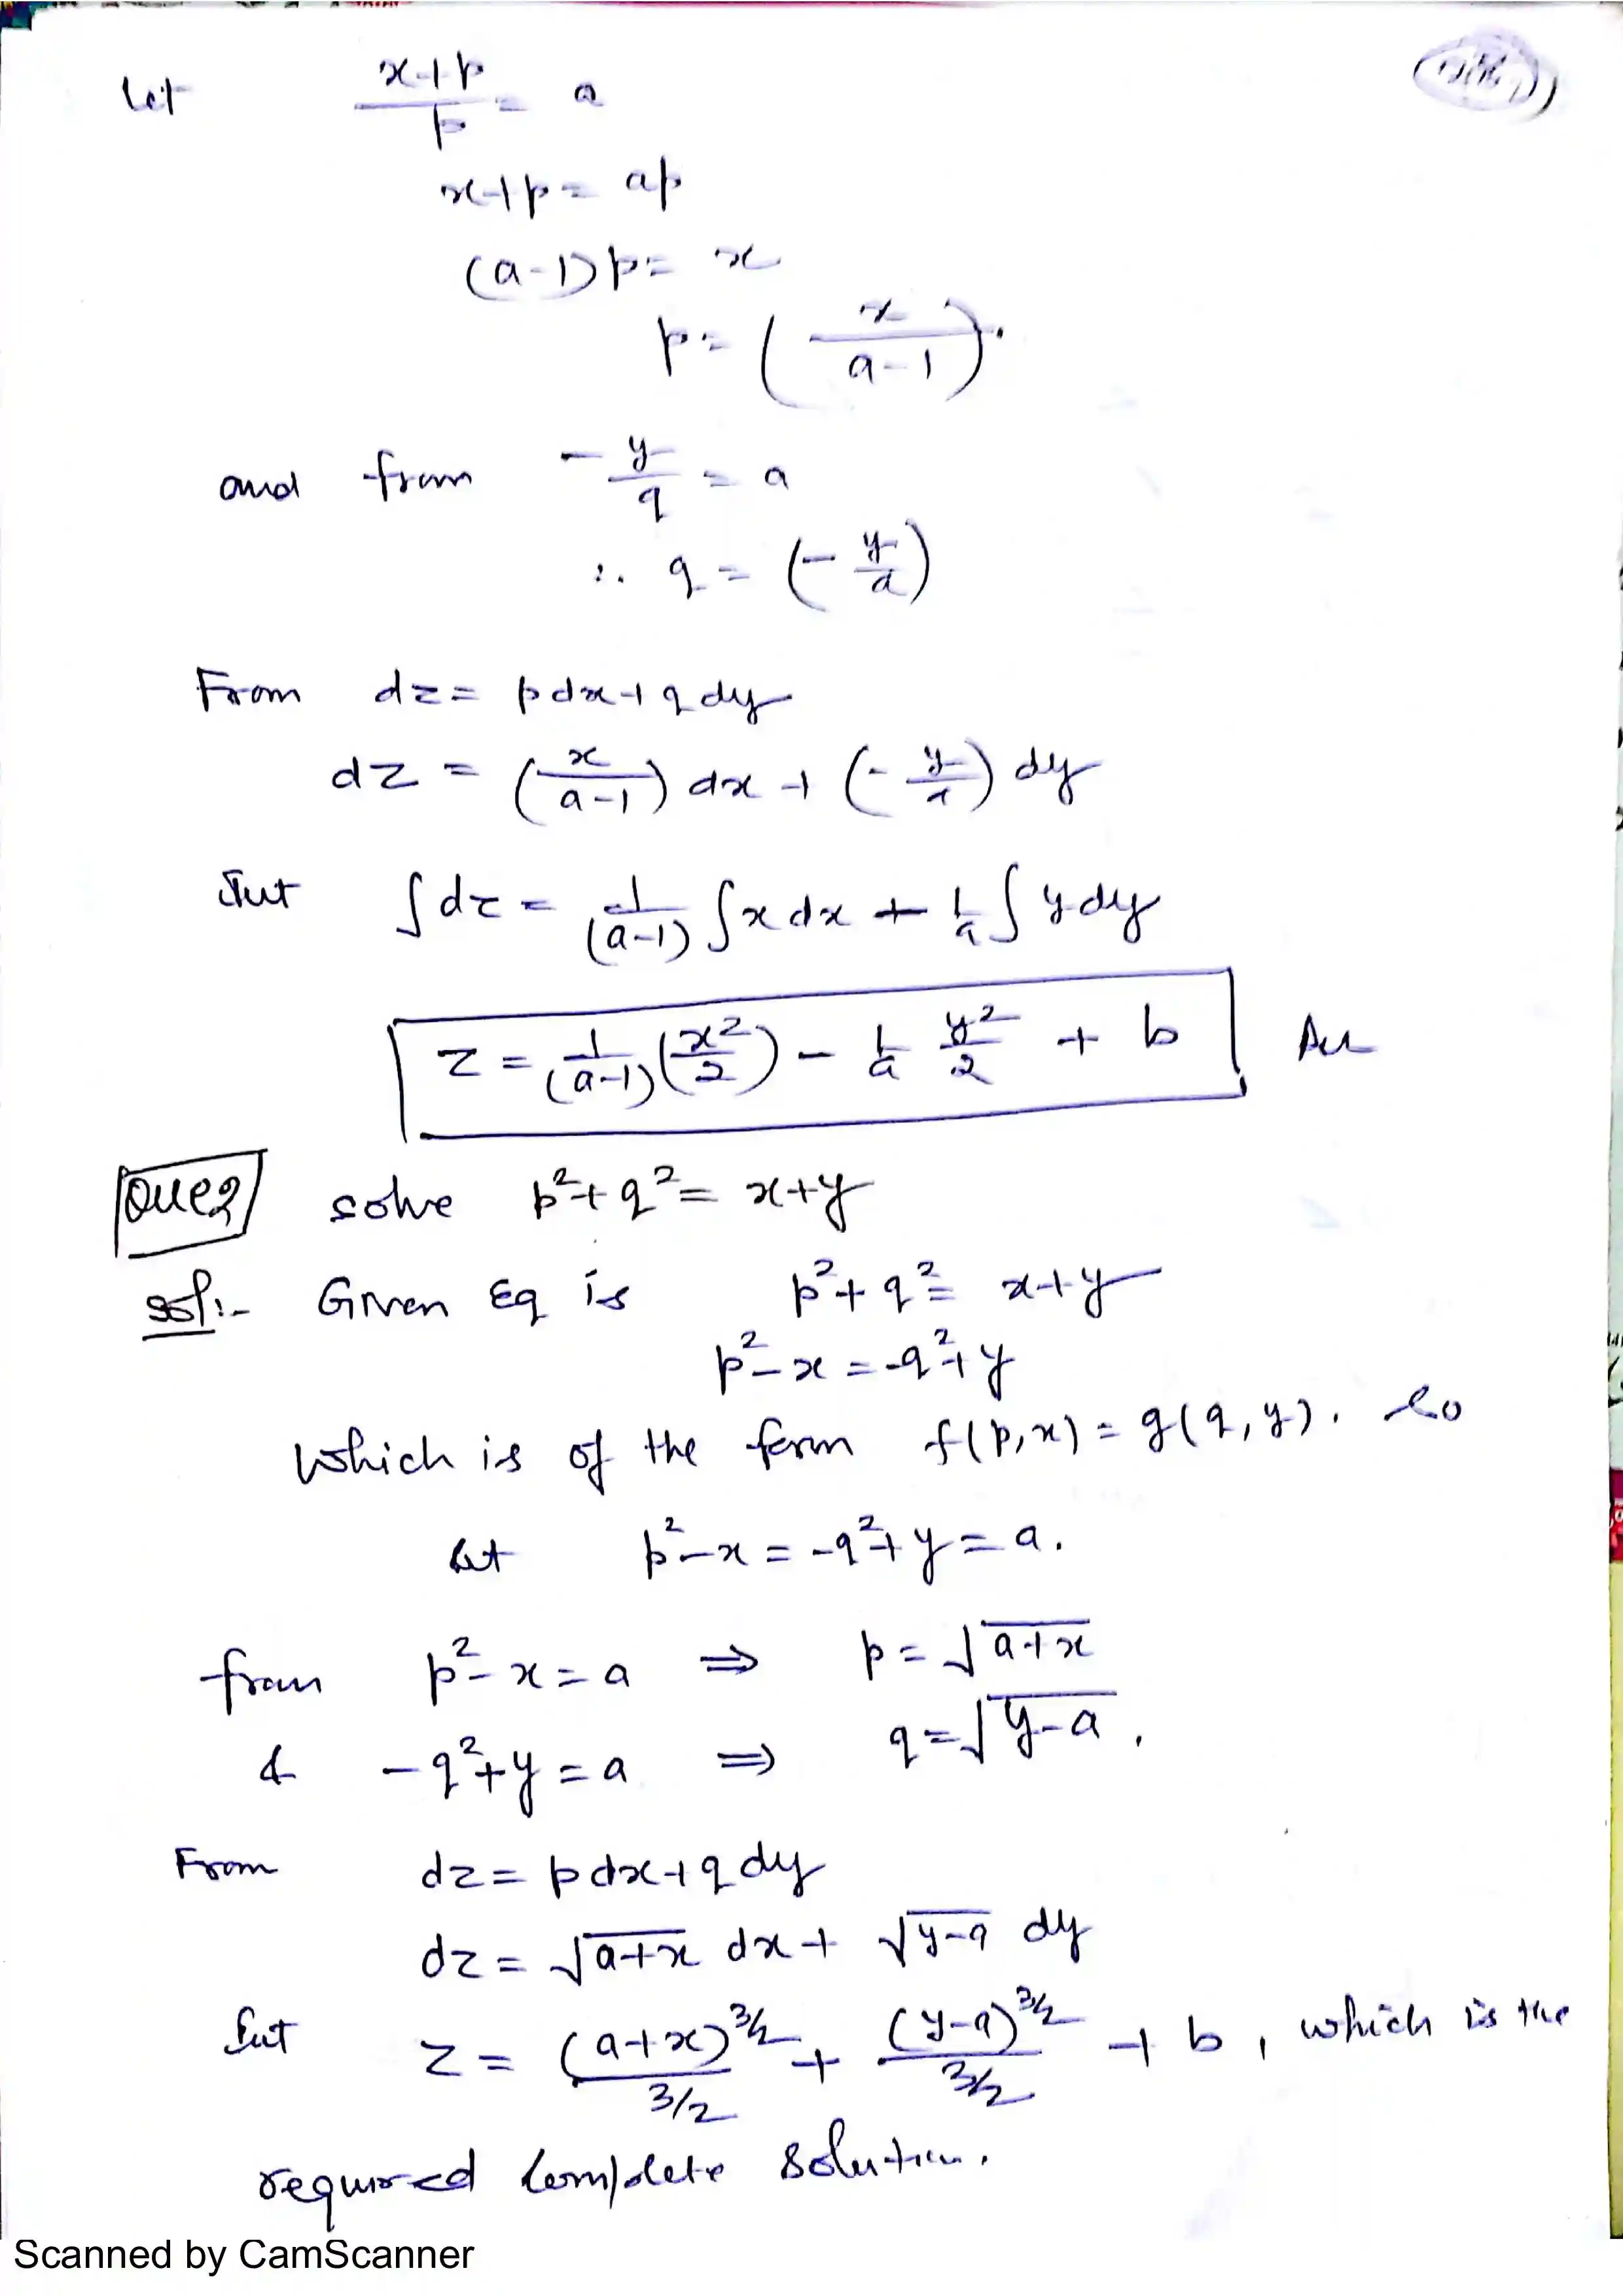 Let (x+p)/p = a
x+p = ap
(a-1)p = x
p = (x/(a-1)).
and from -y/q = a
∴ q = (-y/a)
From dz = pdx+qdy
dz = (x/(a-1)) dx + (-y/a) dy
Int ∫dz = 1/(a-1) ∫x dx + 1/a ∫y dy
z = 1/(a-1) (x²/2) - 1/a y²/2 + b
Que2 solve p²+q² = x+y
sol:- Given Eq is p²+q² = x+y
p²-x = -q²+y
which is of the form f(p,x) = g(q,y). so
let p²-x = -q²+y = a.
from p²-x = a ⇒ p = √(a+x)
& -q²+y = a ⇒ q = √(y-a).
From dz = pdx+qdy
dz = √(a+x) dx + √(y-a) dy
Int z = (a+x)^3/2 / 3/2 + (y-a)^3/2 / 3/2 + b, which is the
required complete solution.
Scanned by CamScanner